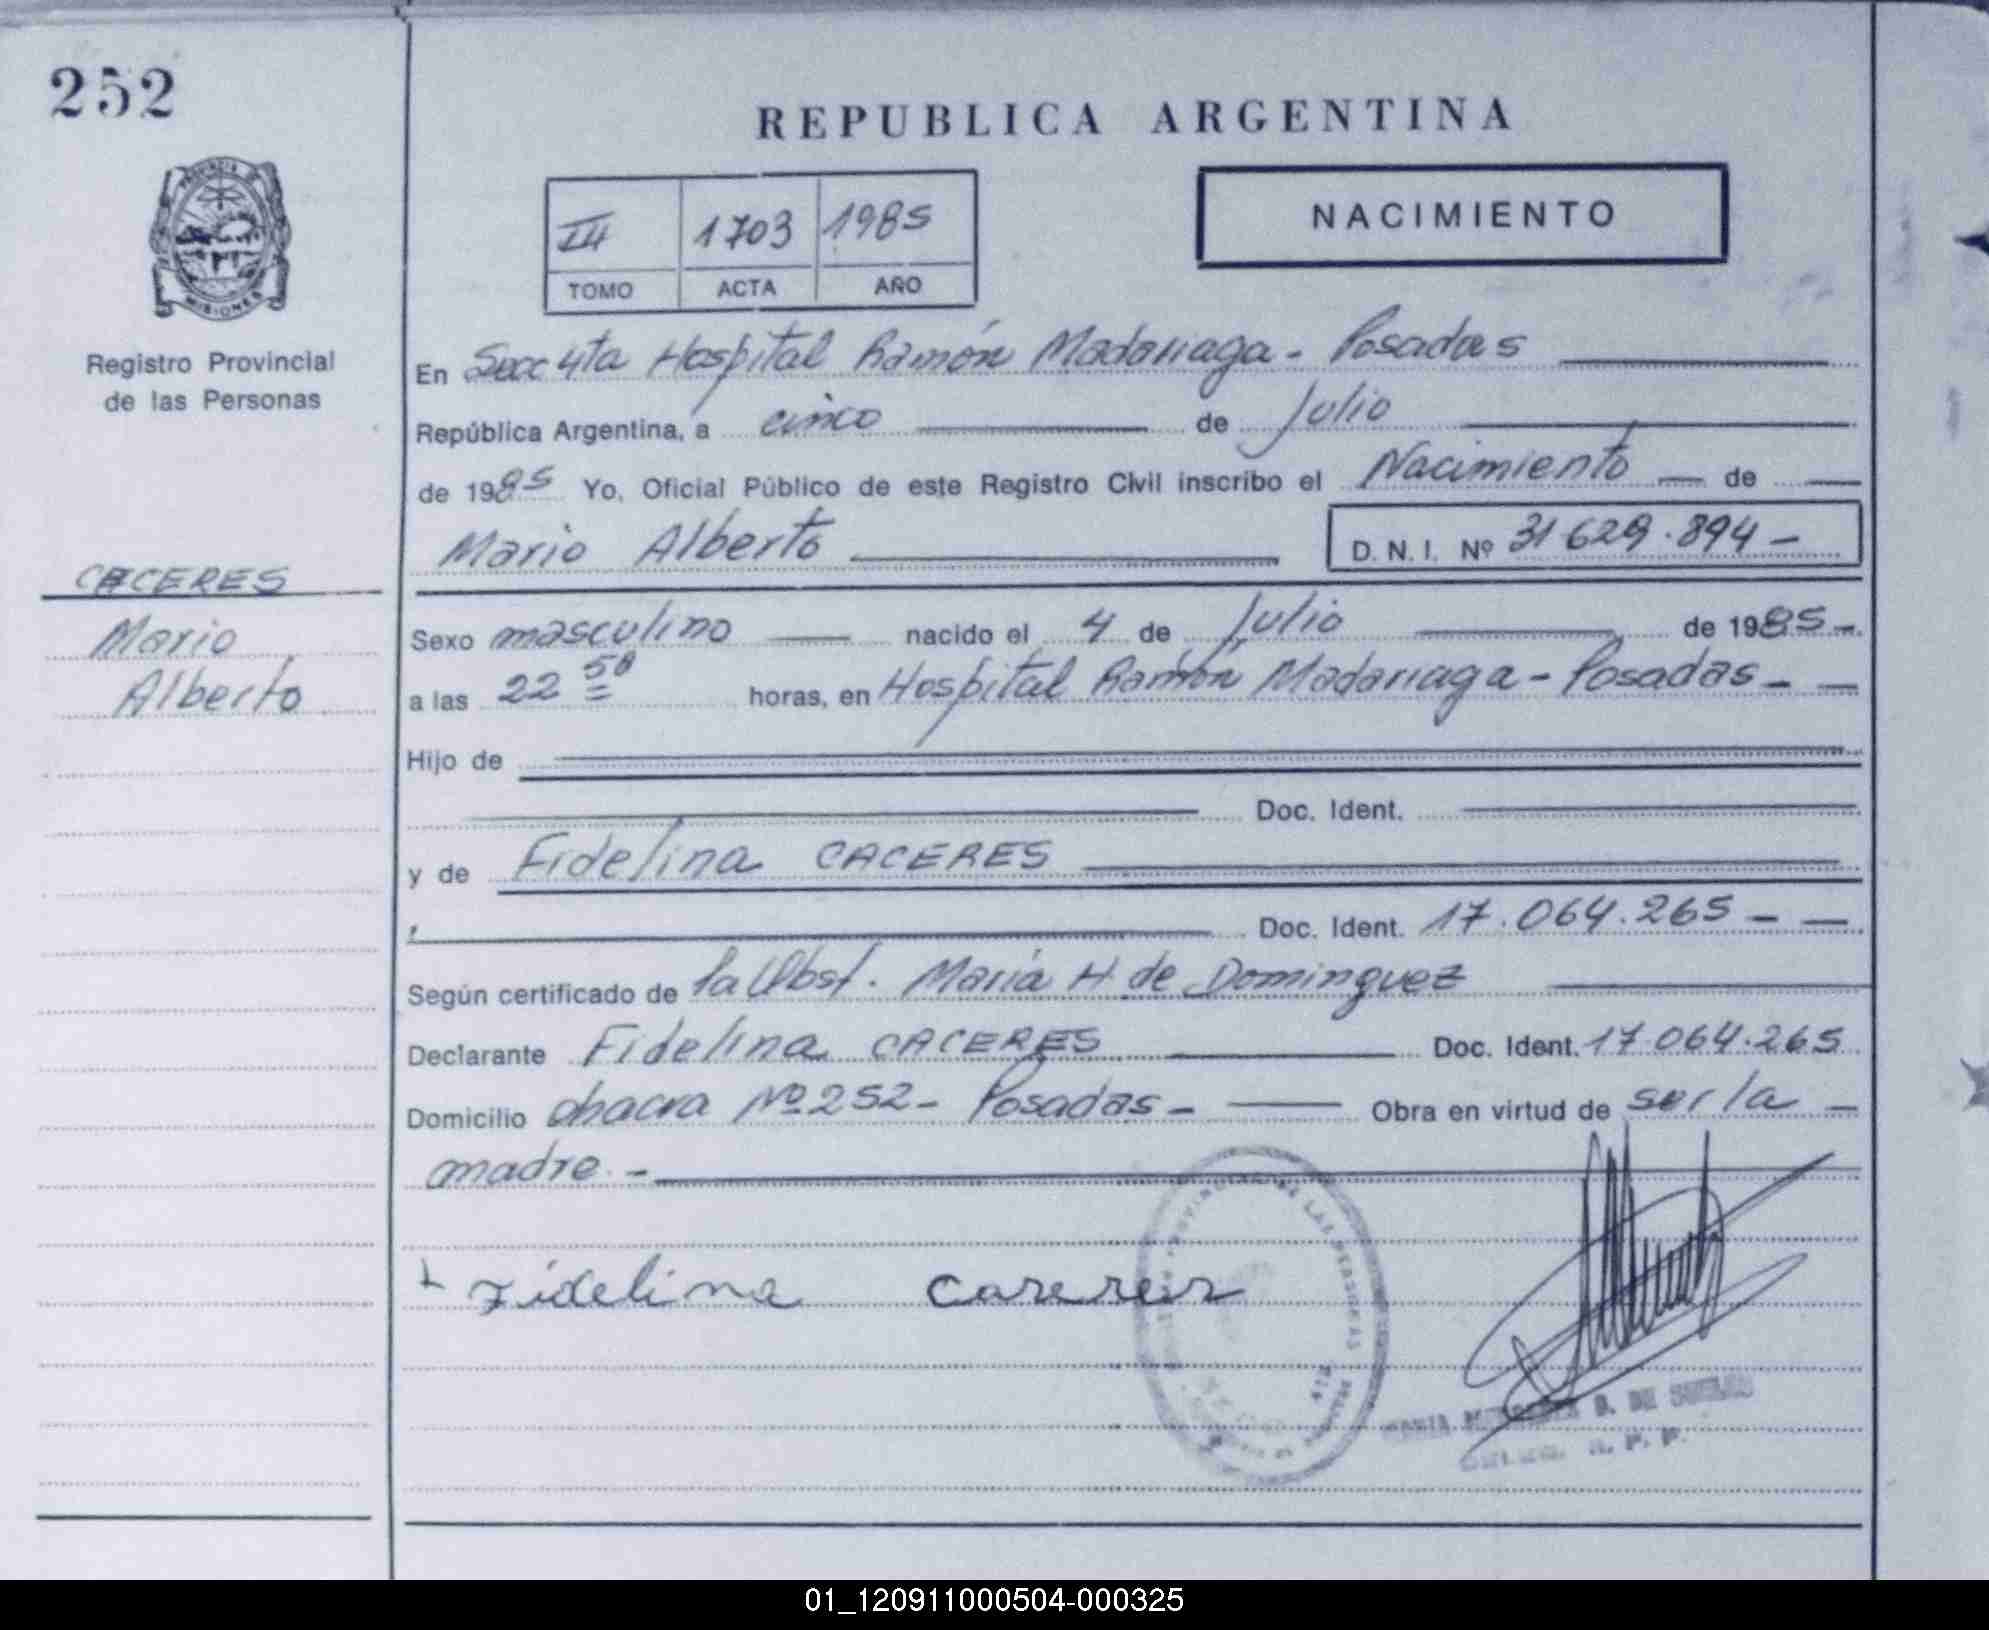 252
REPUBLICA ARGENTINA
PROVINCIA DE
MISIONES
Registro Provincial
de las Personas
III 1703 1985
TOMO ACTA AÑO
NACIMIENTO
En Secc 4ta Hospital Ramón Madariaga - Posadas
República Argentina, a cinco de Julio
de 1985 Yo, Oficial Público de este Registro Civil inscribo el Nacimiento — de —
Mario Alberto D. N. I. Nº 31 629.894 -
CACERES
Mario
Alberto
Sexo masculino nacido el 4 de Julio de 1985 -
a las 22 50 horas, en Hospital Ramón Madariaga - Posadas -
Hijo de
Doc. Ident.
y de Fidelina CACERES
Doc. Ident. 17.064.265 - —
Según certificado de la Obst. María H. de Dominguez
Declarante Fidelina CACERES Doc. Ident. 17.064.265
Domicilio chacra Nº 252 - Posadas - Obra en virtud de ser la -
madre -
Fidelina Careres
DE LAS PERSONAS
R. P. P.
01_120911000504-000325